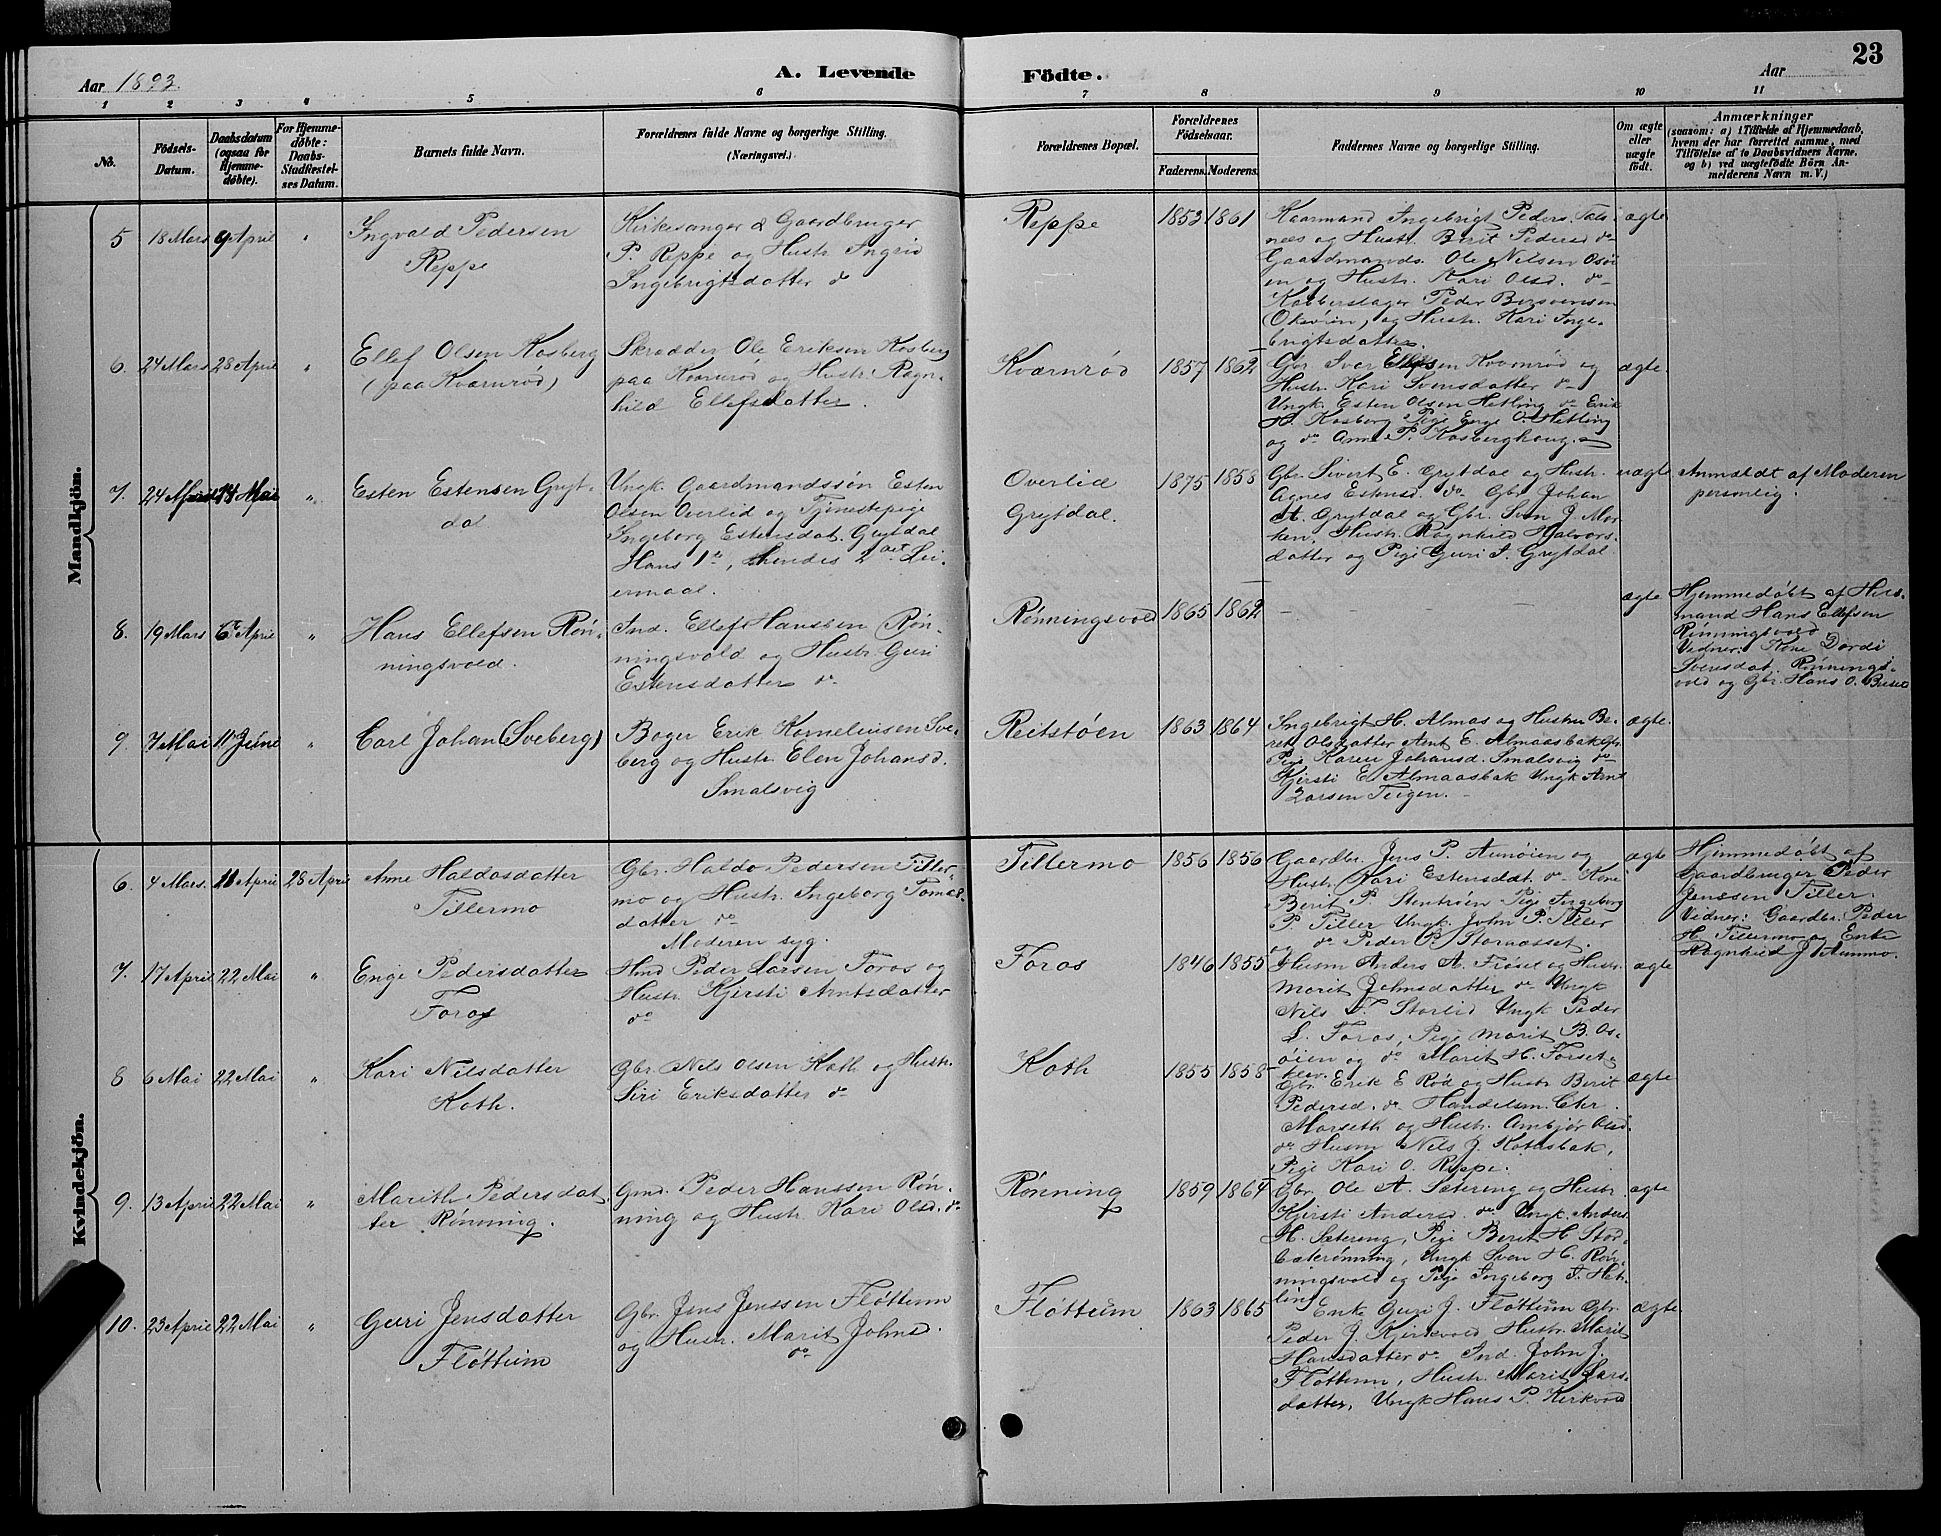 23
Aar 1893.
A. Levende Födte.
Aar
1 2 3 4 5 6 7 8 9 10 11
No.
Födsels-Datum.
Daabsdatum (ogsaa for Hjemme-døbte).
For Hjemme-døbte: Daabs-Stadfæstel-ses Datum.
Barnets fulde Navn.
Forældrenes fulde Navne og borgerlige Stilling.
(Næringsvei.)
Forældrenes Bopæl.
Forældrenes Födselsaar.
Faderens. Moderens.
Faddernes Navne og borgerlige Stilling.
Om ægte eller uægte födt.
Anmærkninger
(saasom: a) i Tilfælde af Hjemmedaab,
hvem der har forrettet samme, med
Tilföielse af to Daabsvidners Navne,
og b) ved uægtefödte Börn An-
melderens Navn m. V.)
Mandkjön.
5 18 Mars 9 April "
Ingvald Pedersen
Reppe
Kirkesanger & Gaardbruger
P. Reppe og Hustr. Ingrid
Ingebrigtsdatter do
Reppe
1853 1861
Kaarmand Ingebrigt Peders. Tals-
næs og Hustr. Berit Pedersd do
Gaardmands. Ole Nilsen Osöi-
en og Hustr. Kari Olsd. do
Kobberslager Peder Bersvensen
og Hustr. Kari Inge-
brigtsdatter.
ægte
6. 24 Mars 28 April "
Ellef Olsen Kosberg
(paa Kværnrød)
Skrædder Ole Eriksen Kosberg
paa Kværnrød og Hustr. Ragn-
hild Ellefsdatter.
Kværnrød
1857 1862
Gbr Iver Ellefsen Kværnrød og
Hustr. Kari Svensdatter do
Ungk. Esten Olsen Hetling do Erik
H. Kosberg Pige Enge O. Hetling
og do Anne P. Kosberghaug.
ægte.
7. 24 14 Mai "
Esten Estensen Gryt-
dal
Ungk. Gaardmandssøn Esten
Olsen Overlid og Tjenestepige
Ingeborg Estensdat. Grytdal
Hans 1te, hendes 2det Lei-
ermaal.
Overlid
Grytdal.
1875 1858
Gbr. Sivert E. Grytdal og Hustr.
Agnes Estensd. do Gbr Johan
A. Grytdal og Gbr. Sven J. Mor-
ken, Hustr. Ragnhild Halvors-
datter og Pige Guri S. Grytdal
uægte
Anmeldt af Moderen
personlig.
8. 19 Mars 6te April "
Hans Ellefsen Røn-
ningsvold.
Ind. Ellef Hanssen Røn-
ningsvold og Hustr. Guri
Estensdatter do
Rønningsvold
1865 1862
ægte
Hjemmedøbt af Hus-
mand Hans Ellefsen
Rønningsvold
Vidner: Kone Dordi
Svensdat. Rønnings-
vold og Gbr. Hans O.
9. 7 Mai 11 June "
Carl Johan (Sveberg)
Bager Erik Korneliusen Sve-
berg og Hustr. Elen Johansd.
Smalsvig
Reitstøen
1863 1864
Ingebrigt H. Almas og Hustru Be-
ret Olsdatter Arnt E. Almaasbak Gbr.
Pige Karen Johansd. Smalsvig do
Kjersti E. Almaasbak Ungk Arnt
Larsen Teigen.
ægte.
Kvindekjön.
6. 4 Mars. 11 April 28 April
Anne Haldosdatter
Tillermo
Gbr. Haldo Pedersen Tiller-
mo og Hustr. Ingeborg Tomas-
datter do
Moderen syg.
Tillermo
1856 1856
Gaardbr. Jens P. Aunøien og
Hustr. Kari Estensdat. do Kone
Berit P. Stentrøen Pige Ingeborg
P. Tiller Ungk. John P. Tiller
og do Peder P. Stornæsset.
ægte
Hjemmedøbt af
Gaardbruger Peder
Jenssen Tiller.
Vidner: Gaardbr. Peder
H. Tillermo og Enke
Ragnhild J Aunmo.
7. 17 April 22 Mai "
Enge Pedersdatter
Foros
Hmd Peder Larsen Foros og
Hustr. Kjersti Arntsdatter
do
Foros
1846 1855
Husm Anders A. Frøset og Hustr.
Marit Johnsdatter do Ungk
Nils T. Storlid Ungk Peder
L. Foros, Pige Marit B. Os-
øien og do Marit H. Forset-
klev.
ægte
8 6 Mai 22 Mai "
Kari Nilsdatter
Koth.
Gbr. Nils Olsen Koth og Hustr.
Siri Eriksdatter do
Koth
1855 1858
Gbr. Erik E Rød og Hustr Berit
Pedersd. do Handelsm. Chr.
Morseth og Hustr. Ambjør Olsd.
do Husm Nils J. Kothsbak,
Pige Kari O. Reppe.
ægte
9. 13 April 22 Mai "
Marith Pedersdat-
ter Rønning.
Gmd. Peder Hanssen Røn-
ning og Hustr. Kari Olsd. do
Rønning
1859 1864
Gbr. Ole A. Sætereng og Hustr
Kjersti Andersd. do Ungk. Anders
H. Sætereng, Pige Berit H Stod-
Ungk Sven H. Røn-
ningsvold og Pige Ingeborg S. Het-
ling
ægte
10. 23 April 22 Mai "
Guri Jensdatter
Fløttum
Gbr. Jens Jenssen Fløttum
og Hustr. Marit Johnsd.
do
Fløttum
1863 1865
Enke Guri J. Fløttum Gbr.
Peder J. Kjerkvold Hustr. Marit
Hansdatter do Ind. John J.
Fløttum, Hustr. Marit Lars-
datter, Ungk Hans P. Kirkvold
ægte